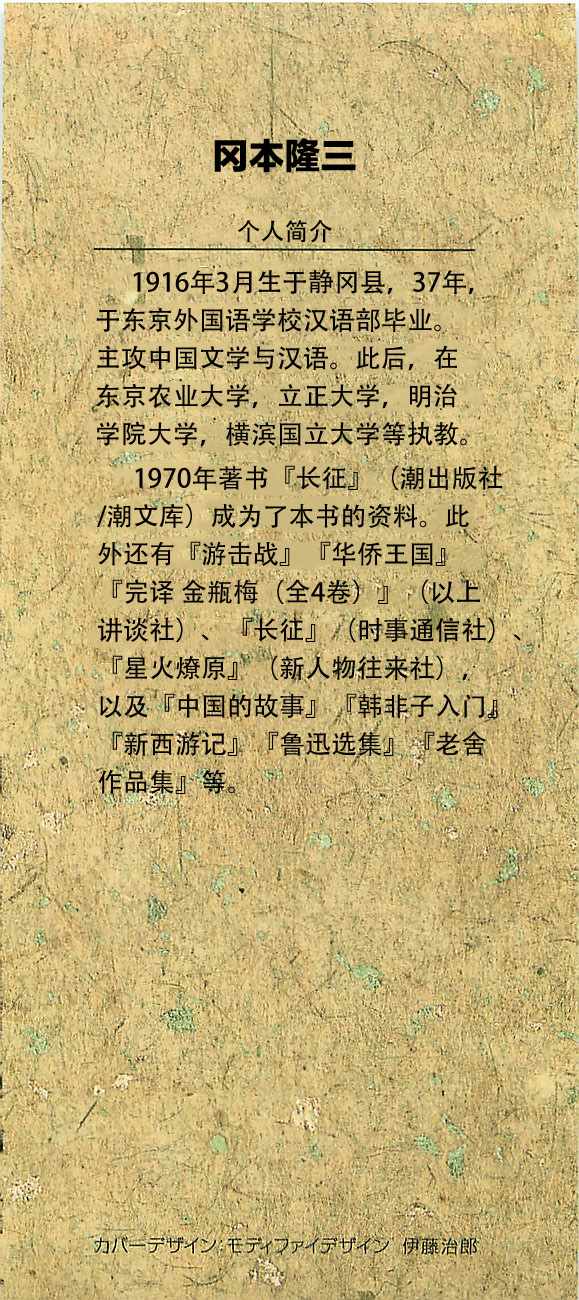 冈本隆三
个人简介
1916年3月生于静冈县，37年，
于东京外国语学校汉语部毕业。
主攻中国文学与汉语。此后，在
东京农业大学，立正大学，明治
学院大学，横滨国立大学等执教。
1970年著书『长征』（潮出版社
/潮文库）成为了本书的资料。此
外还有『游击战』『华侨王国』
『完译 金瓶梅（全4卷）』（以上
讲谈社）、『长征』（时事通信社）、
『星火燎原』（新人物往来社），
以及『中国的故事』『韩非子入门』
『新西游记』『鲁迅选集』『老舍
作品集』等。
カバーデザイン：モディファイデザイン 伊藤治郎